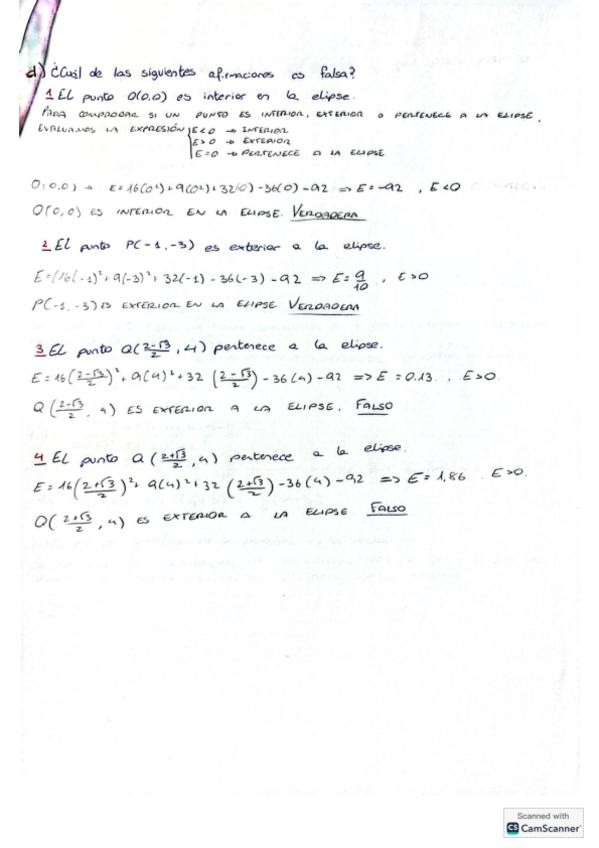 d) ¿Cuál de las siguientes afirmaciones es falsa?
1 El punto O(0,0) es interior en la elipse.
PARA COMPROBAR SI UN PUNTO ES INTERIOR, EXTERIOR O PERTENECE A LA ELIPSE,
EVALUAMOS LA EXPRESIÓN { E<0 → INTERIOR
E>0 → EXTERIOR
E=0 → PERTENECE A LA ELIPSE
O(0,0) → E=16(0²)+9(0²)+32(0)-36(0)-92 ⇒ E=-92, E<0
O(0,0) ES INTERIOR EN LA ELIPSE. VERDADERA
2 El punto P(-1,-3) es exterior a la elipse.
E=(16(-1)²+9(-3)²+32(-1)-36(-3)-92 ⇒ E=9/10, E>0
P(-1,-3) ES EXTERIOR EN LA ELIPSE VERDADERA
3 EL punto Q(2-√3/2, 4) pertenece a la elipse.
E=16(2-√3/2)²+9(4)²+32(2-√3/2)-36(4)-92 ⇒ E=0.13, E>0.
Q(2-√3/2, 4) ES EXTERIOR A LA ELIPSE. FALSO
4 EL punto Q(2+√3/2, 4) pertenece a la elipse.
E=16(2+√3/2)²+9(4)²+32(2+√3/2)-36(4)-92 ⇒ E=1,86 E>0.
Q(2+√3/2, 4) ES EXTERIOR A LA ELIPSE. FALSO
Scanned with
CS CamScanner